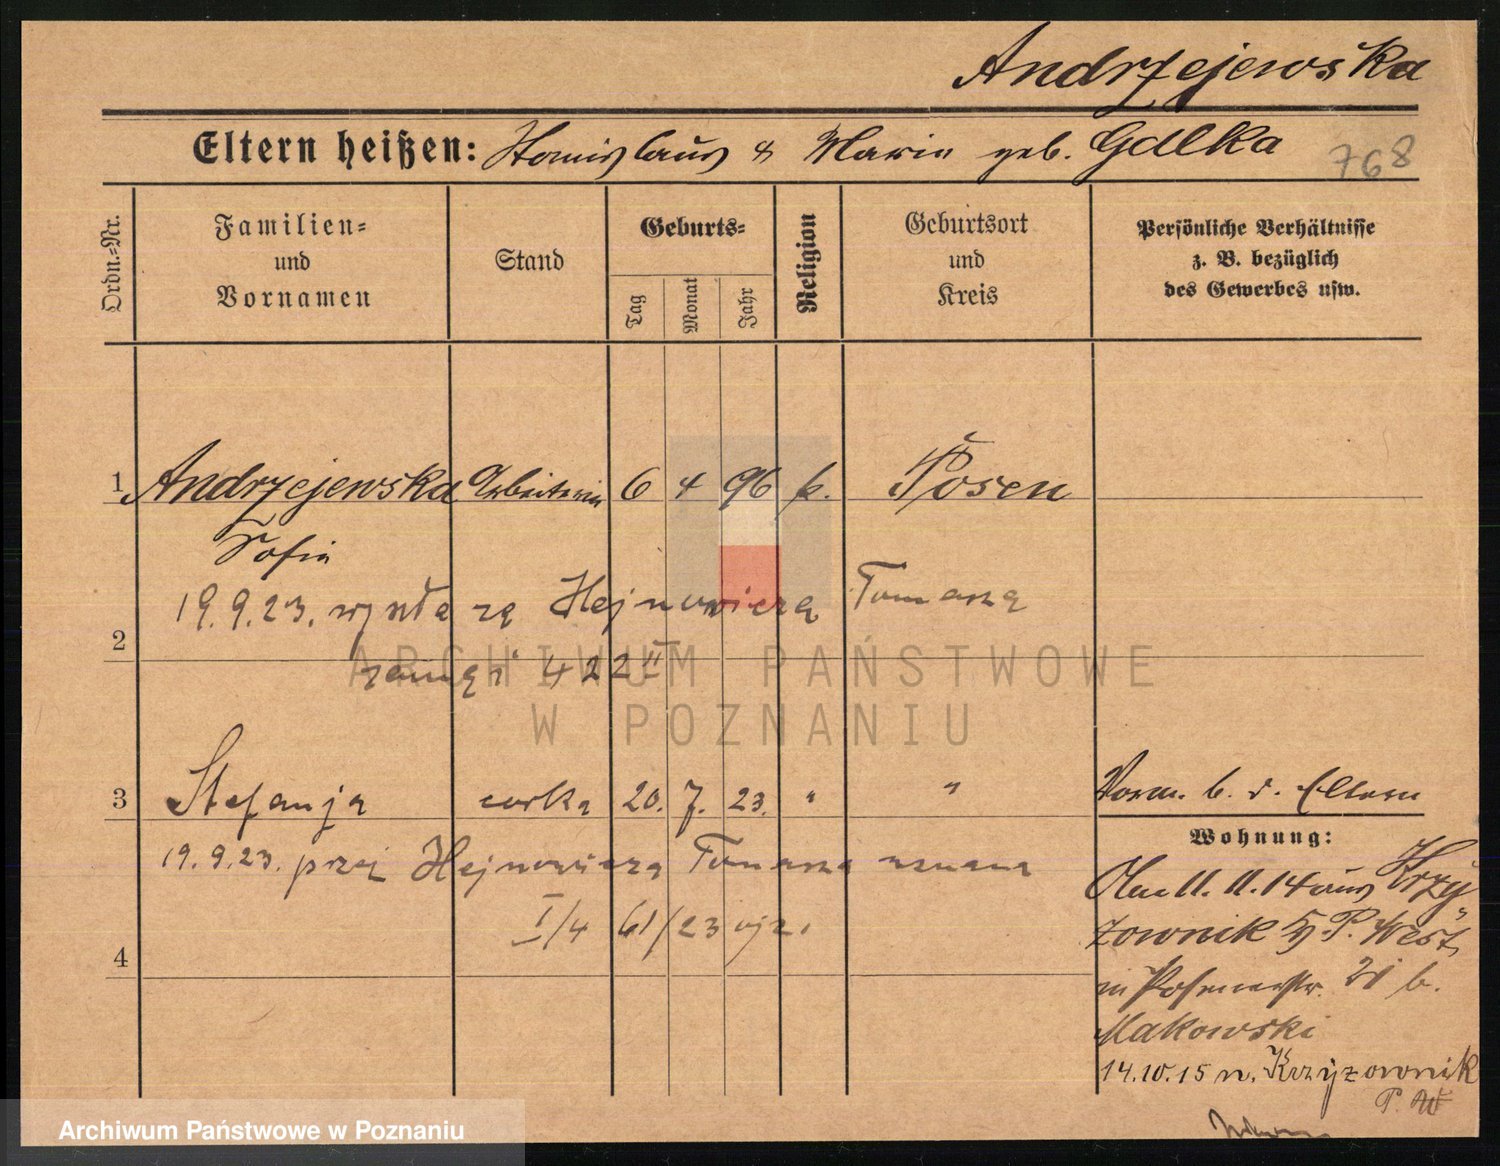 Andrzejewska
Eltern heißen: Stanislaus & Marie geb. Galka
768
Ordn.=Nr.
Familien=
und
Vornamen
Stand
Geburts=
Tag
Monat
Jahr
Religion
Geburtsort
und
Kreis
Persönliche Verhältnisse
z. B. bezüglich
des Gewerbes usw.
1 Andrzejewska Arbeiterin 6 4 96 k. Posen
Sofie
19.9.23. wyszła za Hejnowicza Tomasza
2
zamąż 422 II
ARCHIWUM PAŃSTWOWE
W POZNANIU
3 Stefanja corka 20. 7. 23. " "
Vorm. b. d. Eltern
Wohnung:
19.9.23. przez Hejnowicza Tomasza uznana
11.11.14 aus Krzy
I/4 61/23
zownik P. West
4
in Posenerstr. 21 b.
Makowski
14.10.15 n. Krzyzownik
P. W
Archiwum Państwowe w Poznaniu